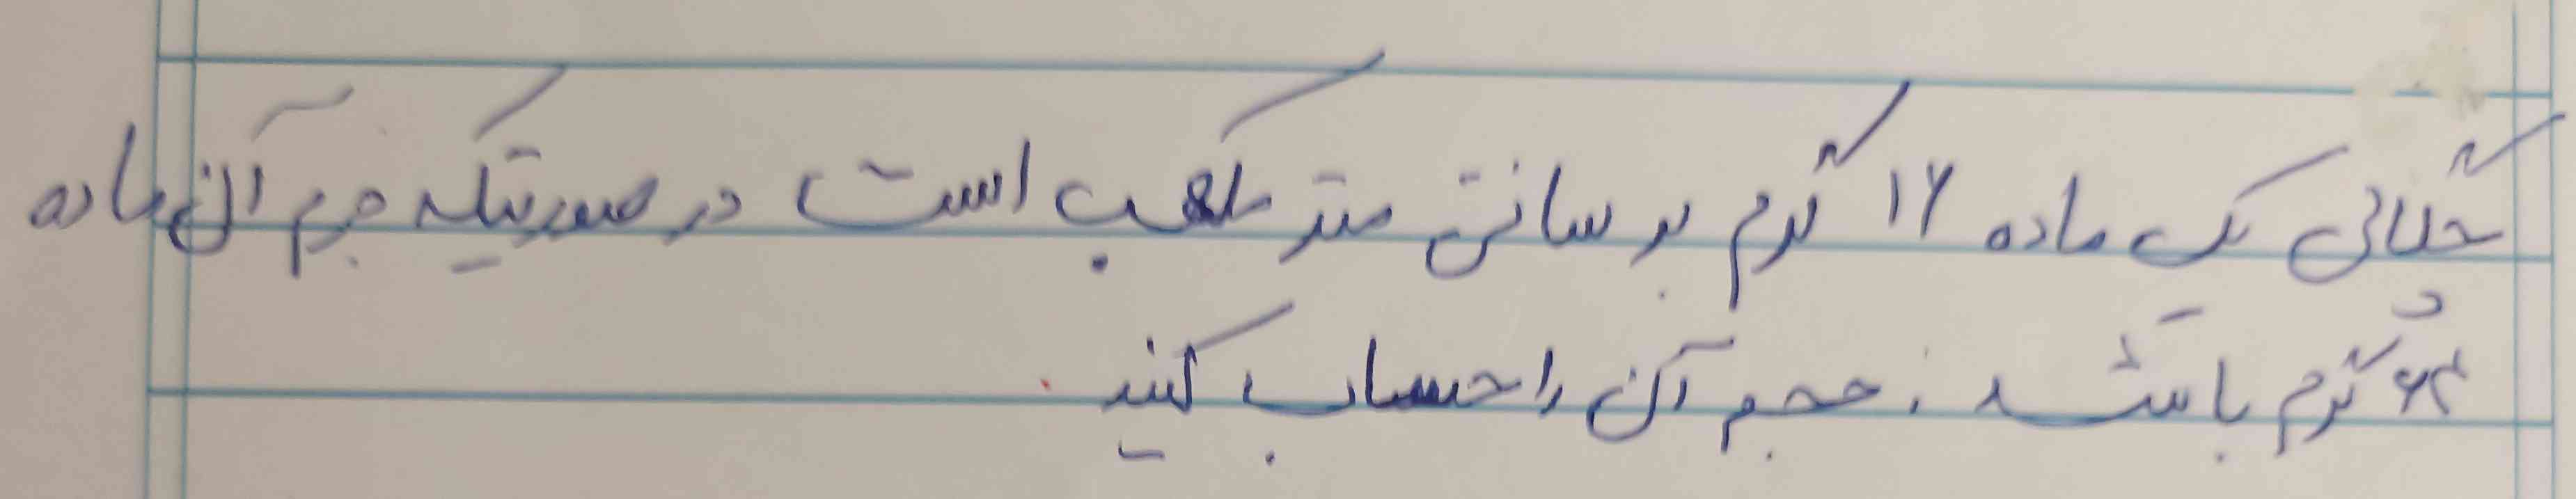 چگالی یک ماده ۱۶ گرم بر سانتی متر مکعب است در صورتیکه جرم آن ماده
۶۴ گرم باشد. حجم آن را حساب کنید.